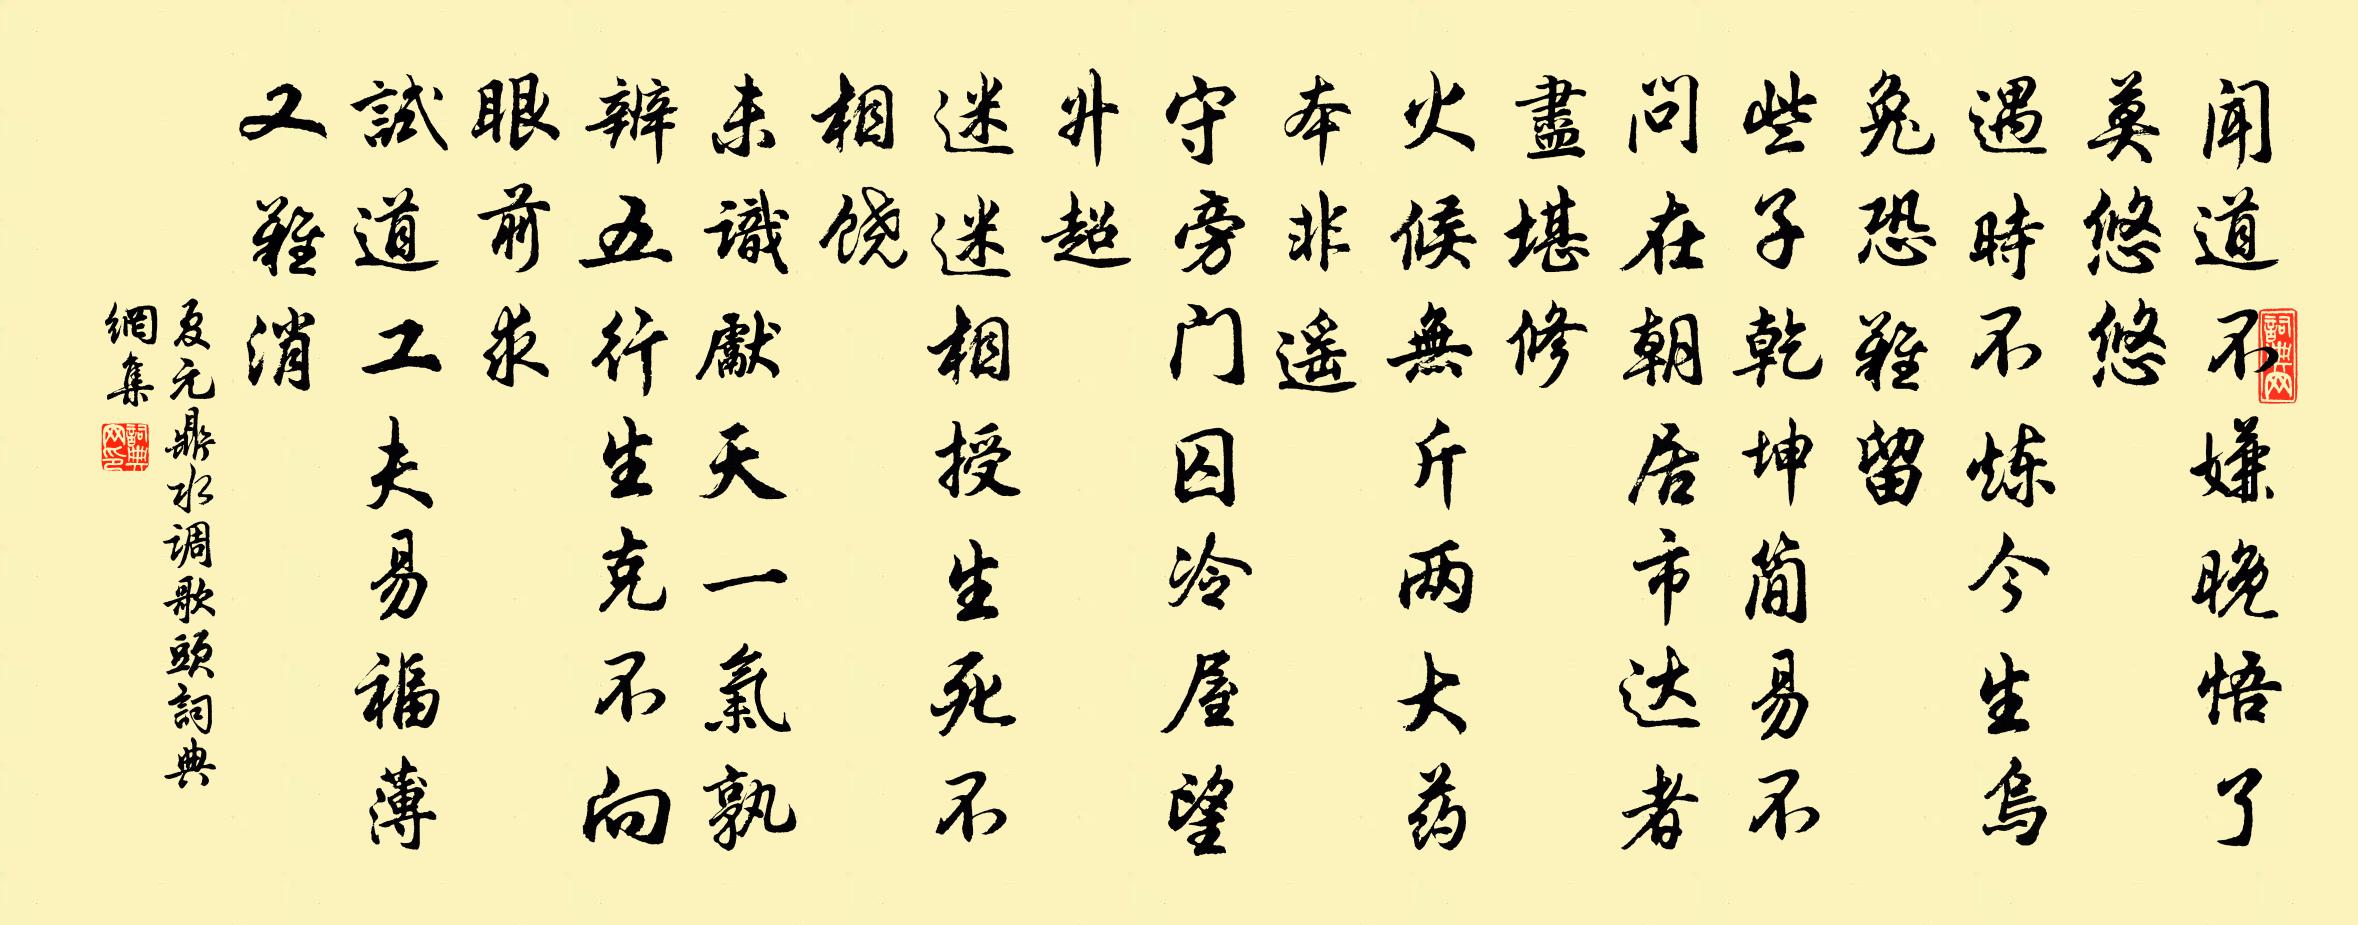 闻道不嫌晚悟了
莫悠悠
遇時不炼今生烏
兔恐難留
些子乾坤简易不
问在朝居市达者
盡堪修
火候無斤两大药
本非遥
守旁门囚冷屋望
升超
迷迷相授生死不
相饶
未識獻天一氣孰
辨五行生克不向
眼前求
試道工夫易福薄
又難消
夏元鼎水调歌頭詞典
網集
詞典网
詞典网印